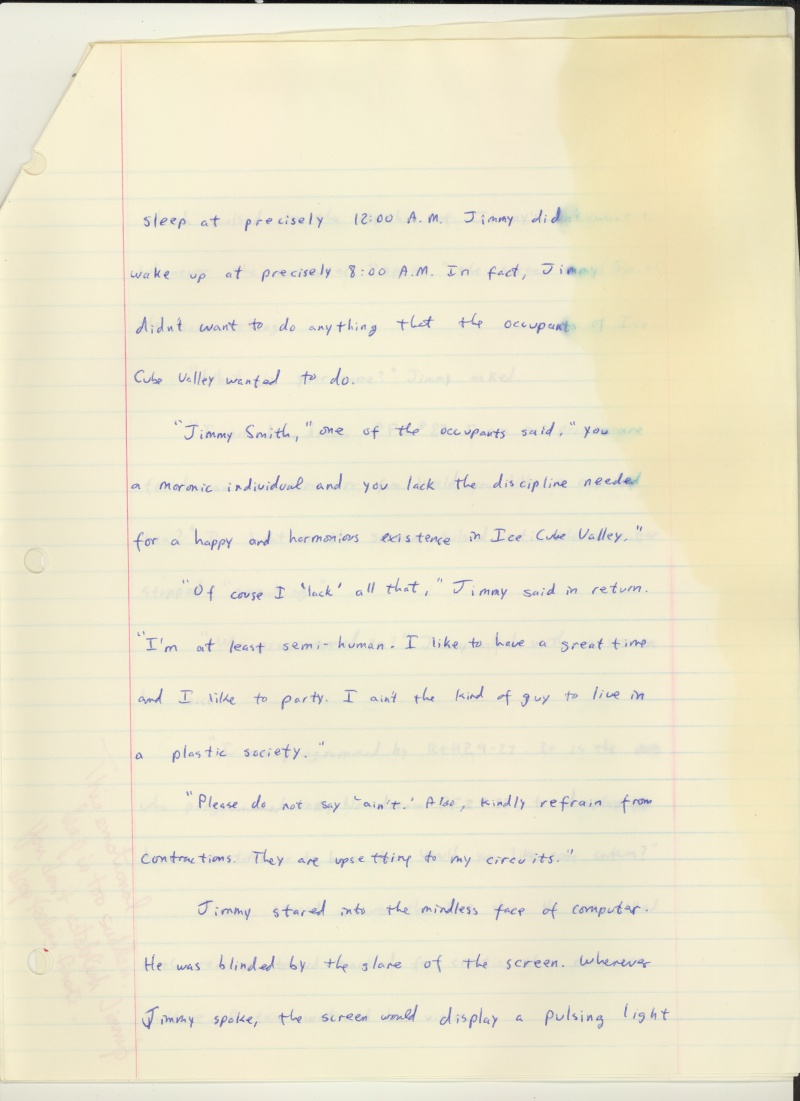 sleep at precisely 12:00 A.M. Jimmy did
wake up at precisely 8:00 A.M. In fact, Jimmy
didn't want to do anything that the occupant
Cube Valley wanted to do.
"Jimmy Smith," one of the occupants said. "You
a moronic individual and you lack the discipline needed
for a happy and harmonious existence in Ice Cube Valley."
"Of couse I 'lack' all that," Jimmy said in return.
"I'm at least semi-human. I like to have a great time
and I like to party. I ain't the kind of guy to live in
a plastic society."
"Please do not say 'ain't.' Also, kindly refrain from
contractions. They are upsetting to my circuits."
Jimmy stared into the mindless face of computer.
He was blinded by the glare of the screen. Wherever
Jimmy spoke, the screen would display a pulsing light